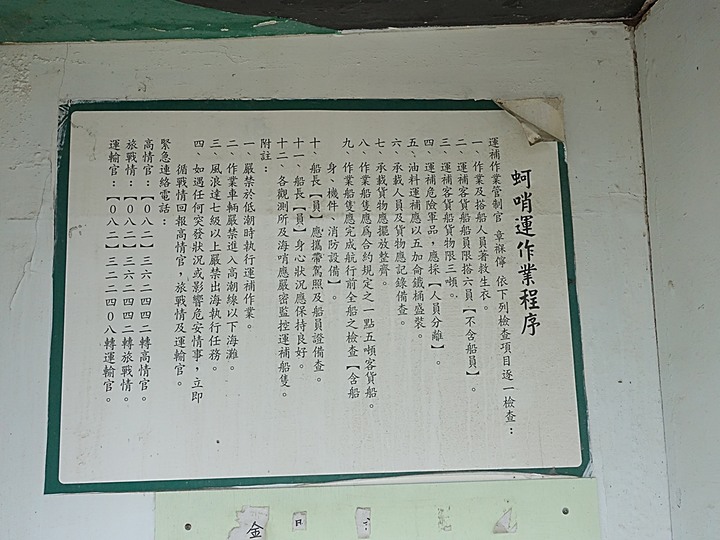 蚵哨運作業程序
運補作業管制官 章 傳 依下列檢查項目逐一檢查：
一、作業及搭船人員著救生衣。
二、運補客貨船船員限搭六員【不含船員】。
三、運補客貨船貨物限三噸。
四、運補危險軍品，應採【人員分離】。
五、油料運補應以五加侖鐵桶盛裝。
六、承載人員及貨物應記錄備查。
七、承載貨物應擺放整齊。
八、作業船隻應為合約規定之一點五噸客貨船。
九、作業船隻應完成航行前全船之檢查【含船
身、機件、消防設備】。
十、船長【員】應攜帶駕照及船員證備查。
十一、船長【員】身心狀況應保持良好。
十二、各觀測所及海哨應嚴密監控運補船隻。
附註：
一、嚴禁於低潮時執行運補作業。
二、作業車輛嚴禁進入高潮線以下海灘。
三、風浪達七級以上嚴禁出海執行任務。
四、如遇任何突發狀況或影響危安情事，立即
循戰情回報高情官，旅戰情及運輸官。
緊急連絡電話：
高情官：【０八二】三六二四四二轉高情官。
旅戰情：【０八二】三六二四四二轉旅戰情。
運輸官：【０八二】三二二四０八轉運輸官。
金
日